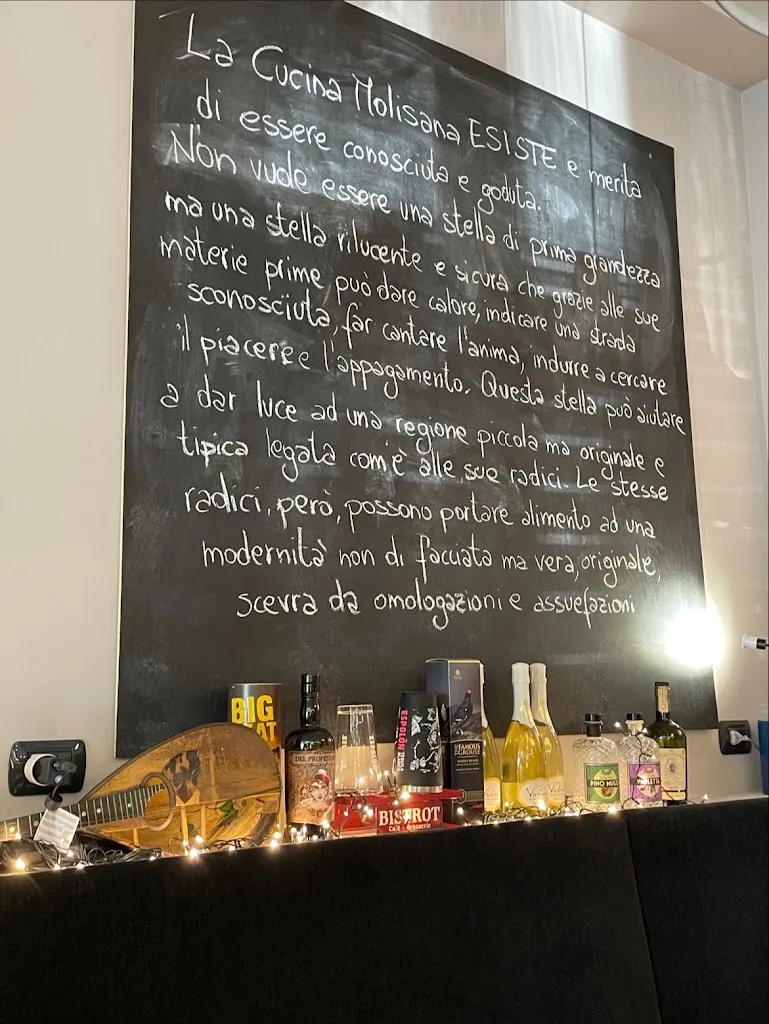 La Cucina Molisana ESISTE e merita
di essere conosciuta e goduta.
Non vuole essere una stella di prima grandezza
ma una stella rilucente e sicura che grazie alle sue
materie prime può dare calore, indicare una strada
sconosciuta, far cantare l'anima, indurre a cercare
il piacere e l'appagamento. Questa stella può aiutare
a dar luce ad una regione piccola ma originale e
tipica legata com'è alle sue radici. Le stesse
radici, però, possono portare alimento ad una
modernità non di facciata ma vera, originale,
scevra da omologazioni e assuefazioni
BIG
DEL PROFESS
ESPOLÓN
FAMOUS
GROUSE
BISTROT
Café - Brasserie
PINO MUGO
VIOLETTA